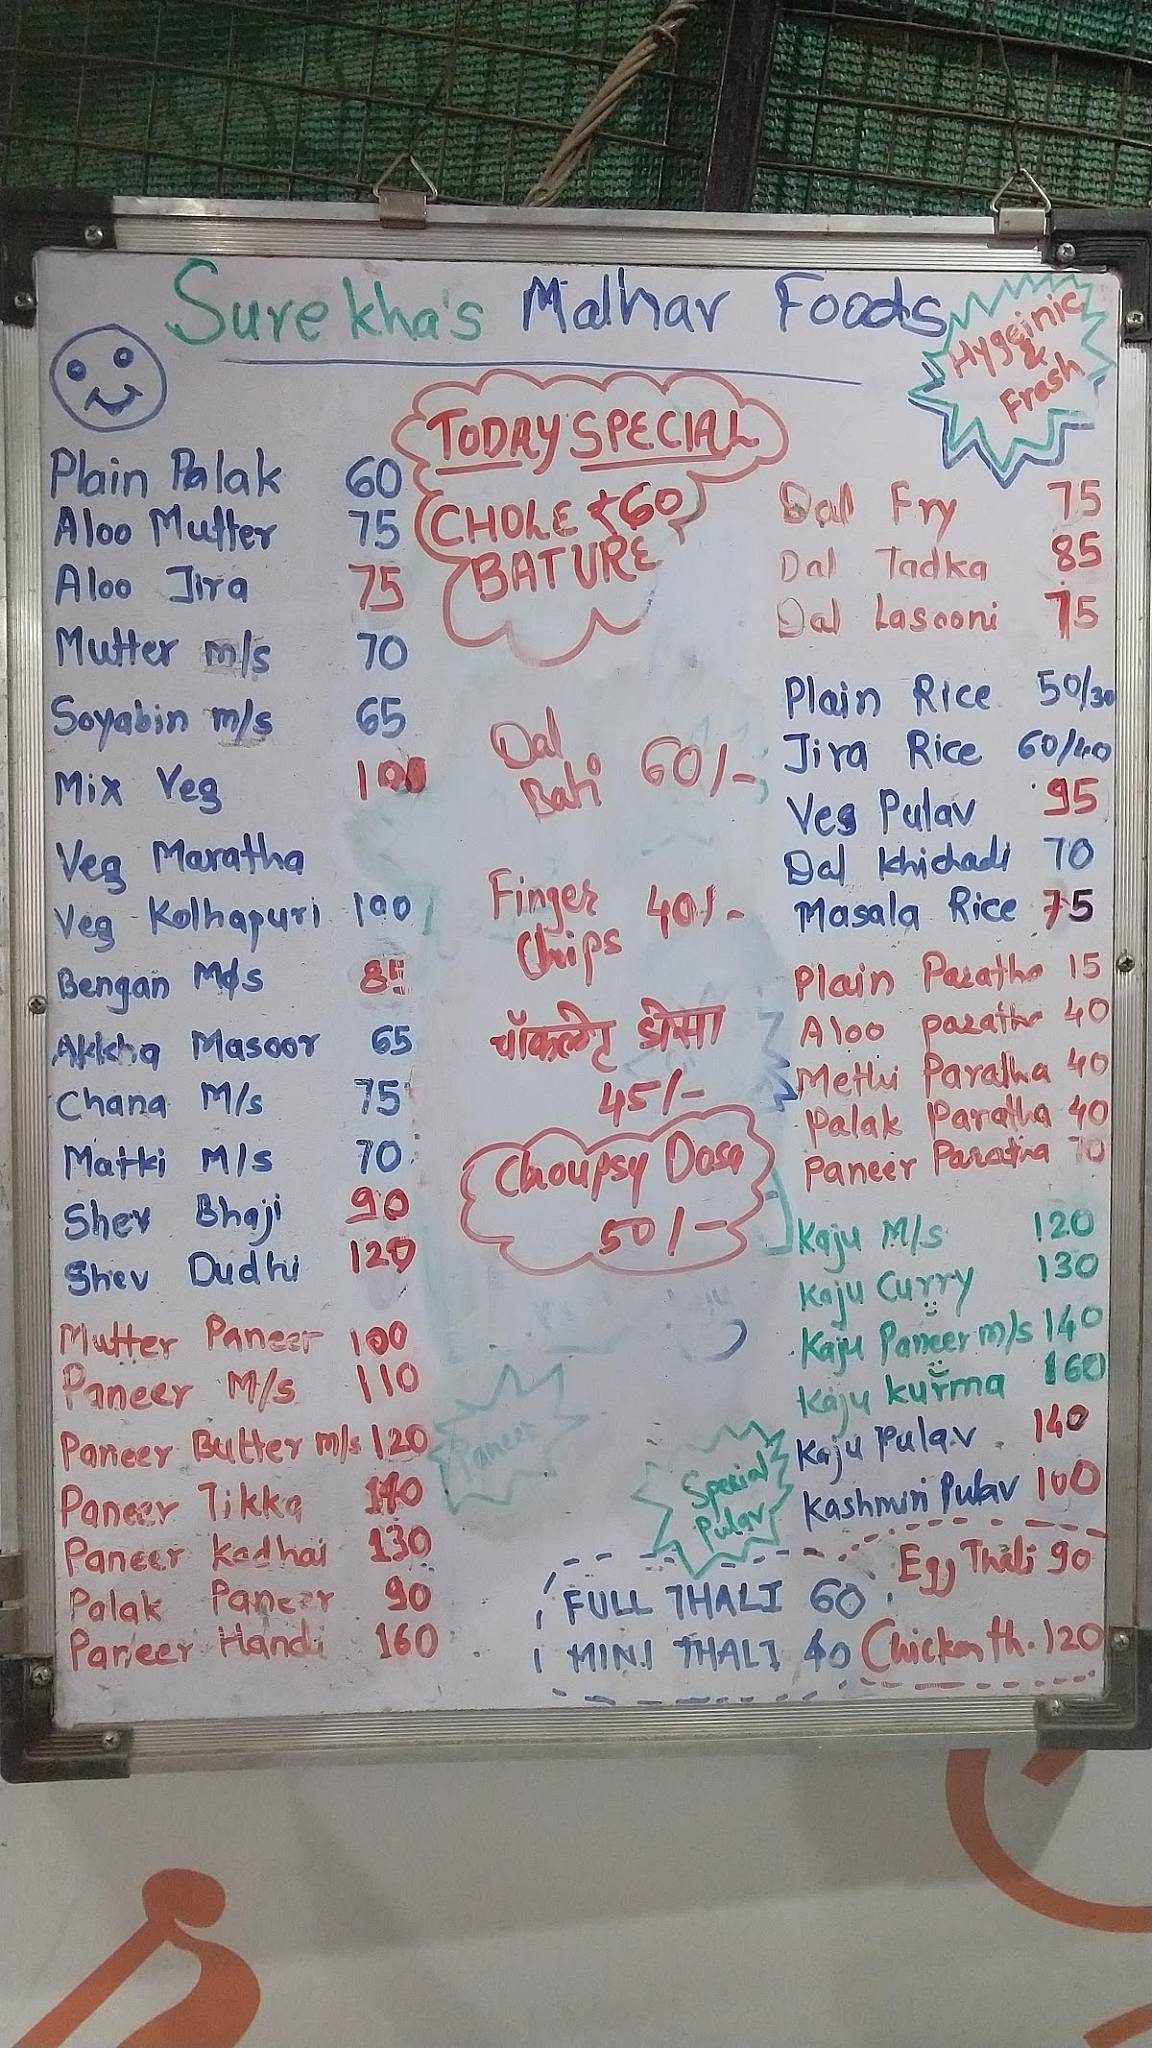 Surekha's Malhar Foods
Hygeinic
&
Fresh
Plain Palak 60
Aloo Mutter 75
Aloo Jira 75
Mutter m/s 70
Soyabin m/s 65
Mix Veg 100
Veg Maratha
Veg Kolhapuri 100
Bengan M/s 85
Akkha Masoor 65
Chana M/s 75
Matki M/s 70
Shev Bhaji 90
Shev Dudhi 120
Mutter Paneer 100
Paneer M/s 110
Paneer Butter m/s 120
Paneer Tikka 140
Paneer Kadhai 130
Palak Paneer 90
Paneer Handi 160
TODAY SPECIAL
CHOLE ₹60
BATURE
Dal
Bati 60/-
Finger
Chips 40/-
चॉकलेट डोसा
45/-
Choupsy Dosa
50/-
Paneer
Special
Pulav
Dal Fry 75
Dal Tadka 85
Dal Lasooni 75
Plain Rice 50/30
Jira Rice 60/40
Veg Pulav 95
Dal Khichadi 70
Masala Rice 75
Plain Paratha 15
Aloo paratha 40
Methi Paratha 40
Palak Paratha 40
Paneer Paratha 70
Kaju M/s 120
Kaju Curry 130
Kaju Paneer m/s 140
Kaju Kurma 160
Kaju Pulav 140
Kashmiri Pulav 100
FULL THALI 60
MINI THALI 40
Egg Thali 90
Chicken th. 120